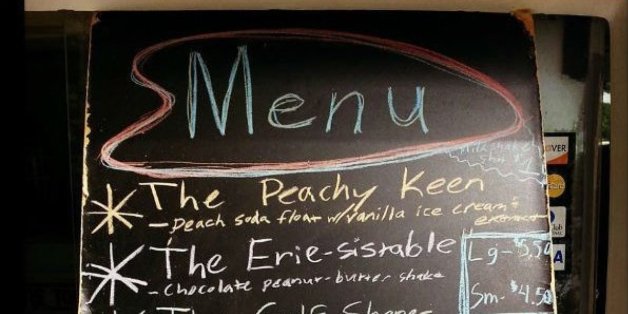 Menu
The Peachy Keen
- Peach soda float w/vanilla ice cream +
The Erie-sistable
- Chocolate peanut-butter shake
Lg - $5.50
Sm - $4.50
The
OVER